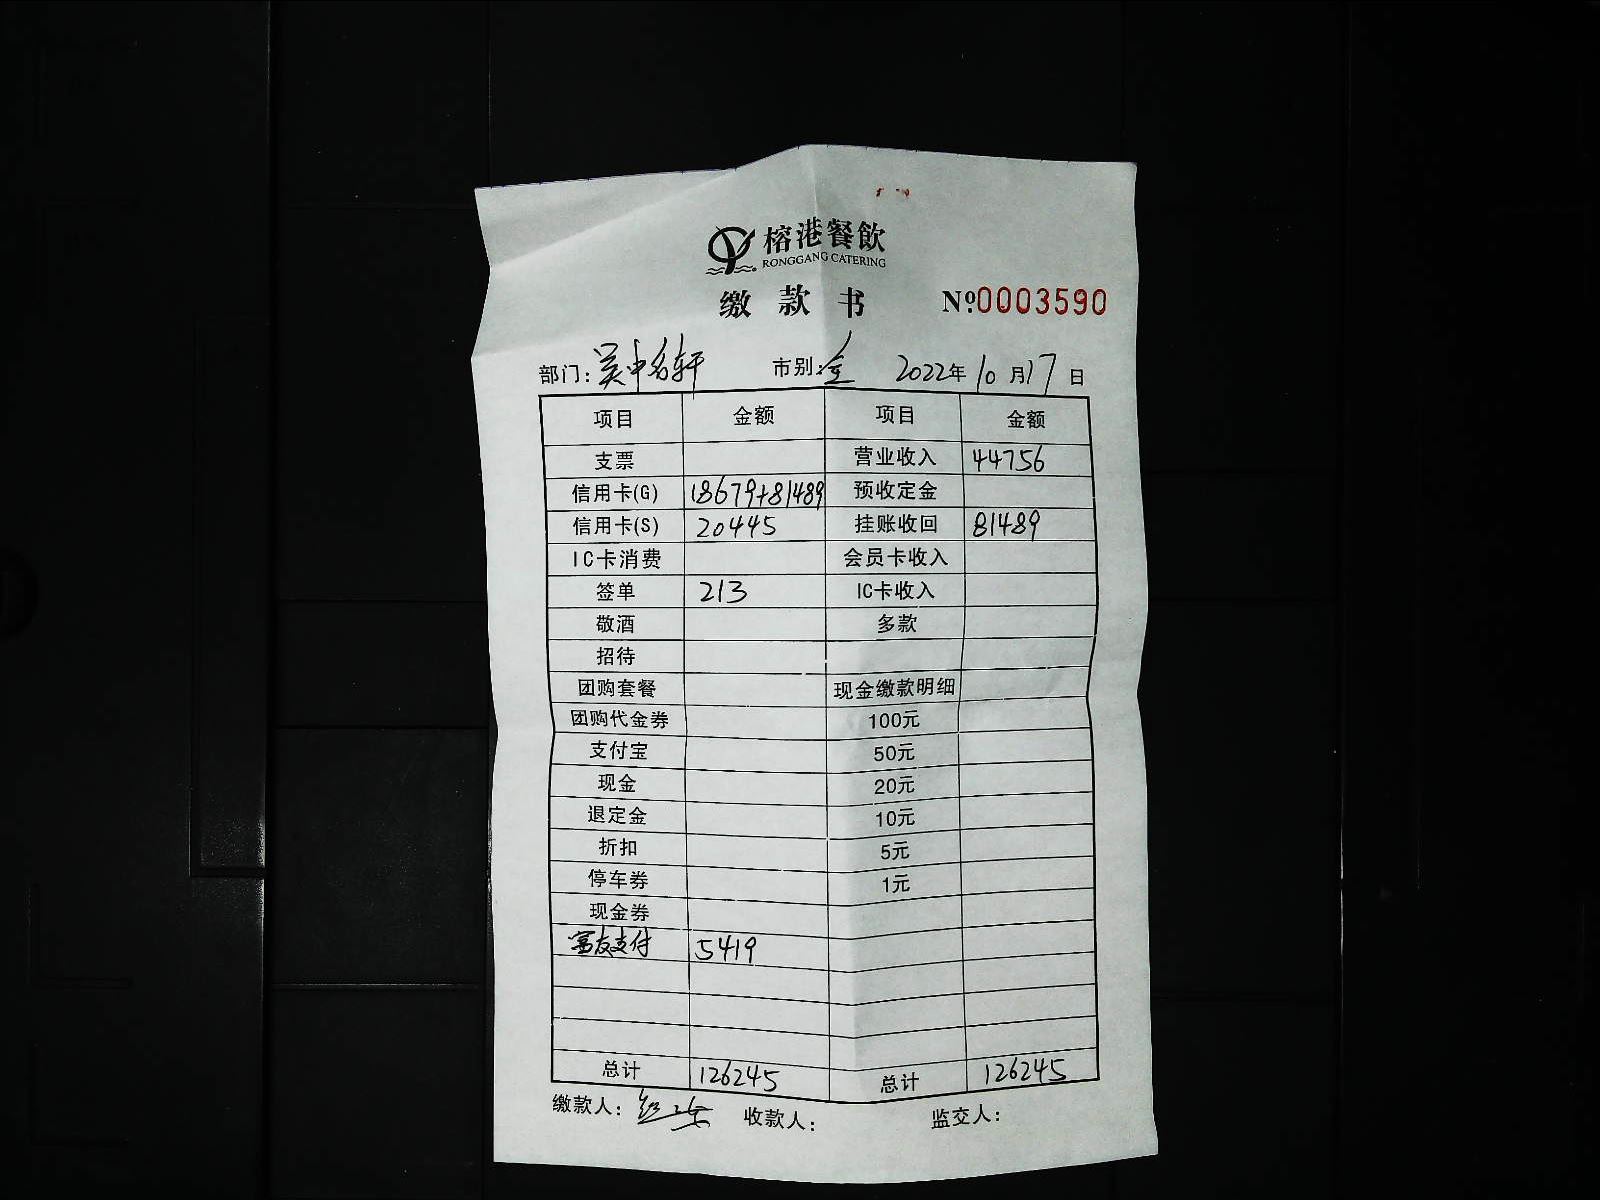 榕港餐飲
RONGGANG CATERING
缴款书 №:0003590
部门: 吴中名轩 市别: 全 2022年10月17日
项目 金额 项目 金额
支票 营业收入 44756
信用卡(G) 18679+81489 预收定金
信用卡(S) 20445 挂账收回 81489
IC卡消费 会员卡收入
签单 213 IC卡收入
敬酒 多款
招待
团购套餐 现金缴款明细
团购代金券 100元
支付宝 50元
现金 20元
退定金 10元
折扣 5元
停车券 1元
现金券
富友支付 5419
总计 126245 总计 126245
缴款人: 收款人: 监交人: